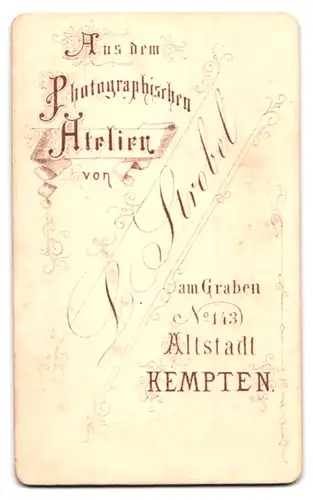 Aus dem
Photographischen
Atelier
von
L. Strobel
am Graben
No 143
Altstadt
KEMPTEN.